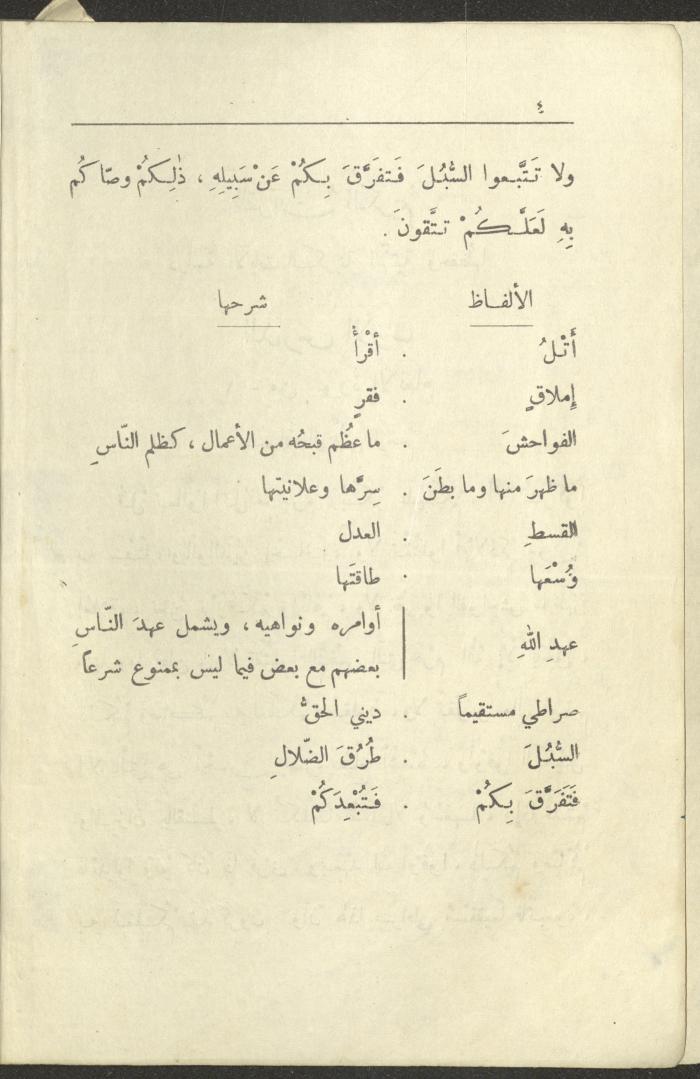 ٤
ولا تَتَّبعوا السُّبُلَ فَتفَرَّقَ بِكُمْ عَنْ سَبِيلِهِ ، ذٰلِكُمْ وصّاكُم
بِهِ لَعَلَّكُمْ تتَّقونَ .
الألفاظ شرحها
أَتْلُ . أقْرأْ
إملاقٍ . فقرٍ
الفواحشَ . ما عظُم قبحُه من الأعمال ، كظلم النّاسِ
ما ظهرَ منها وما بطَنَ . سِرَّها وعلانيتها
القسطِ . العدل
وُسْعَها . طاقتَها
عهدِ اللهِ أوامره ونواهيه ، ويشمل عهدَ النّاسِ
بعضهم مع بعض فيما ليس بممنوع شرعاً
صراطي مستقيماً . ديني الحقُّ
السُّبُلَ . طُرُقَ الضّلالِ
فَتَفَرَّقَ بِكُمْ . فَتُبْعِدَكُمْ